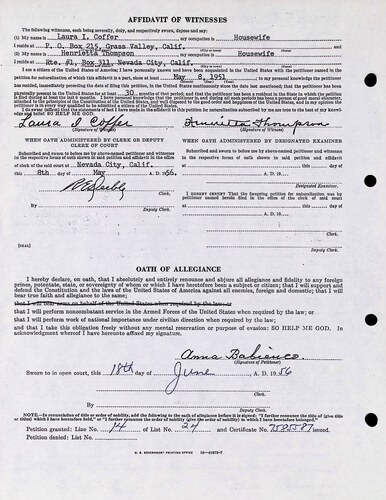 AFFIDAVIT OF WITNESSES
The following witnesses, each being severally, duly, and respectively sworn, depose and say:
(1) My name is Laura I. Coffer, my occupation is Housewife
I reside at P. O. Box 215, Grass Valley, Calif.
(2) My name is Henrietta Thompson, my occupation is Housewife
I reside at Rte. #1, Box 311, Nevada City, Calif.
I am a citizen of the United States of America; I have personally known and have been acquainted in the United States with the petitioner named in the
petition for naturalization of which this affidavit is a part, since at least May 8, 1951
to my personal knowledge the petitioner
has resided, immediately preceding the date of filing this petition, in the United States continuously since the date last mentioned; that the petitioner has been
physically present in the United States for at least 30 months of that period;
SO HELP ME GOD.
Laura I Coffer
(Signature of Witness)
Henrietta Thompson
(Signature of Witness)
WHEN OATH ADMINISTERED BY CLERK OR DEPUTY
CLERK OF COURT
Subscribed and sworn to before me by above-named petitioner and witnesses
in the respective forms of oath shown in said petition and affidavit in the office
of clerk of said court at Nevada City, Calif.
this 8th day of May A. D. 1956.
Clerk.
By
Deputy Clerk.
[SEAL]
WHEN OATH ADMINISTERED BY DESIGNATED EXAMINER
Subscribed and sworn to before me by above-named petitioner and witnesses
in the respective forms of oath shown in said petition and affidavit at
this day of , A. D. 19
Designated Examiner.
I HEREBY CERTIFY that the foregoing petition for naturalization was by
petitioner named herein filed in the office of the clerk of said court
this day of A. D. 19
Clerk.
By
Deputy Clerk.
OATH OF ALLEGIANCE
I hereby declare, on oath, that I absolutely and entirely renounce and abjure all allegiance and fidelity to any foreign
prince, potentate, state, or sovereignty of whom or which I have heretofore been a subject or citizen; that I will support and
defend the Constitution and the laws of the United States of America against all enemies, foreign and domestic; that I will
bear true faith and allegiance to the same;
that I will bear arms on behalf of the United States when required by the law; or
that I will perform noncombatant service in the Armed Forces of the United States when required by the law; or
that I will perform work of national importance under civilian direction when required by the law;
and that I take this obligation freely without any mental reservation or purpose of evasion: SO HELP ME GOD. In
acknowledgment whereof I have hereunto affixed my signature.
Anna
(Signature of Petitioner)
Sworn to in open court, this 18th day of June, A. D. 1956
Clerk.
By
Deputy Clerk.
NOTE.—In renunciation of title or order of nobility, add the following to the oath of allegiance before it is signed: "I further renounce the title of (give title or
titles) which I have heretofore held," or "I further renounce the order of nobility (give the order of nobility) to which I have heretofore belonged."
Petition granted: Line No. 14 of List No. 24 and Certificate No. 7585587 issued.
Petition denied: List No.
U. S. GOVERNMENT PRINTING OFFICE